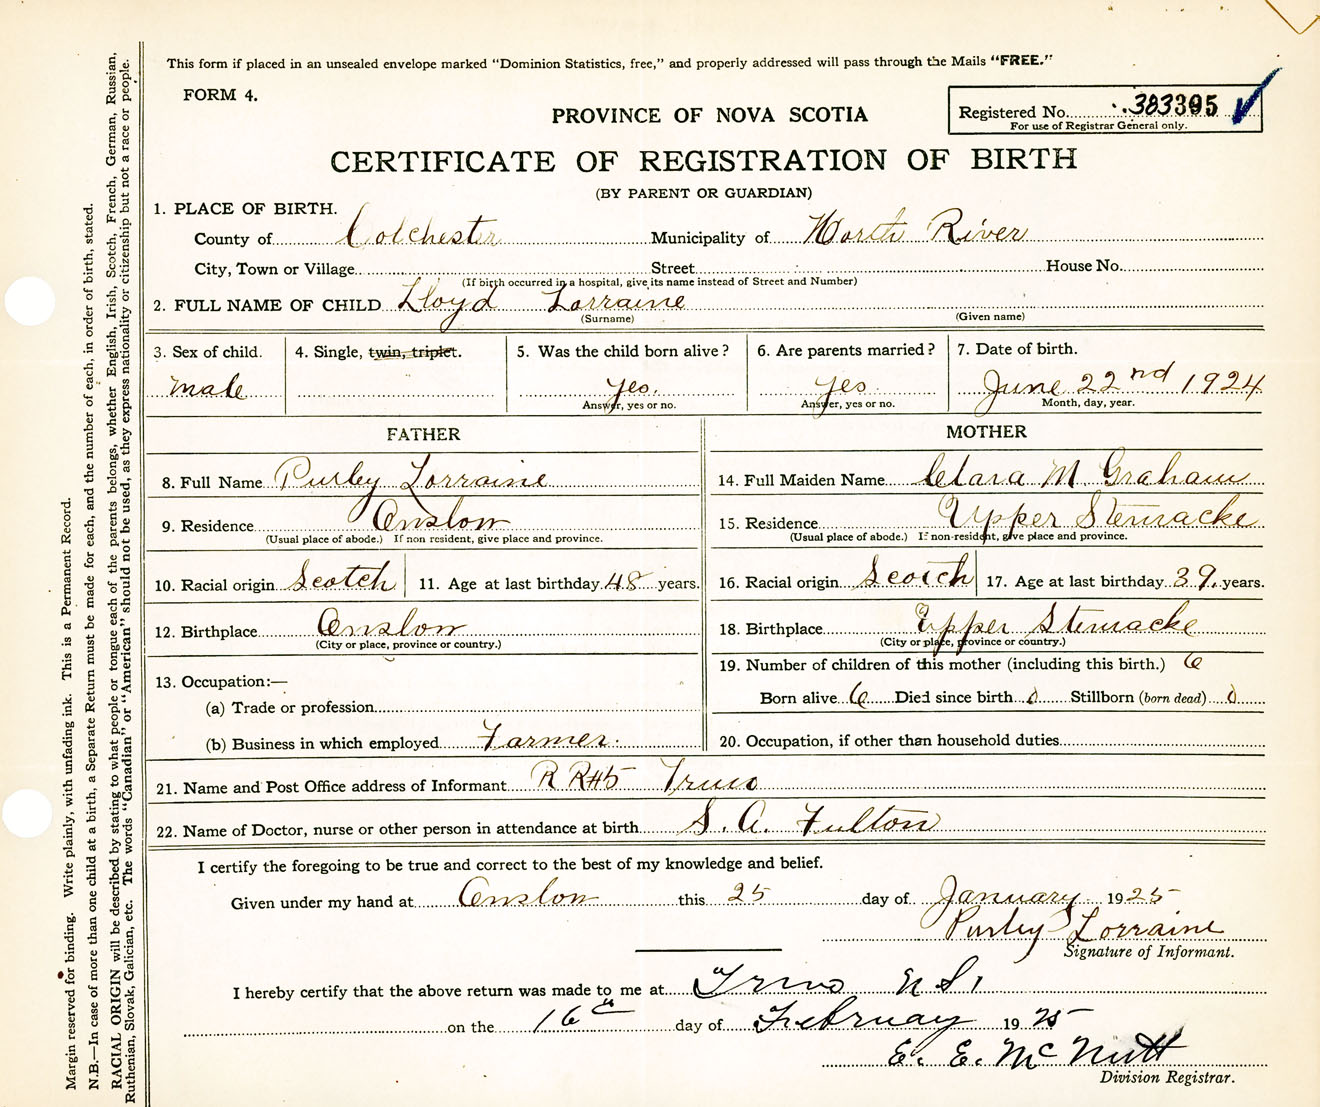 This form if placed in an unsealed envelope marked "Dominion Statistics, free," and properly addressed will pass through the Mails "FREE."
FORM 4.
PROVINCE OF NOVA SCOTIA
Registered No. 383395
For use of Registrar General only.
CERTIFICATE OF REGISTRATION OF BIRTH
(BY PARENT OR GUARDIAN)
1. PLACE OF BIRTH.
County of Colchester Municipality of North River
City, Town or Village Street House No.
(If birth occurred in a hospital, give its name instead of Street and Number)
2. FULL NAME OF CHILD Lloyd Lorraine
(Surname) (Given name)
3. Sex of child. 4. Single, twin, triplet. 5. Was the child born alive? 6. Are parents married? 7. Date of birth.
male yes. yes. June 22nd 1924
Answer, yes or no. Answer, yes or no. Month, day, year.
FATHER MOTHER
8. Full Name Purley Lorraine 14. Full Maiden Name Clara M Graham
9. Residence Onslow 15. Residence Upper Stewiacke
(Usual place of abode.) If non resident, give place and province. (Usual place of abode.) If non-resident, give place and province.
10. Racial origin Scotch 11. Age at last birthday 48 years. 16. Racial origin Scotch 17. Age at last birthday 39. years.
12. Birthplace Onslow 18. Birthplace Upper Stewiacke
(City or place, province or country.) (City or place, province or country.)
19. Number of children of this mother (including this birth.) 6
13. Occupation:—
Born alive 6 Died since birth 0 Stillborn (born dead) 0
(a) Trade or profession
(b) Business in which employed Farmer. 20. Occupation, if other than household duties
21. Name and Post Office address of Informant R R#5 Truro
22. Name of Doctor, nurse or other person in attendance at birth S. A. Fulton
I certify the foregoing to be true and correct to the best of my knowledge and belief.
Given under my hand at Onslow this 25 day of January 1925
Purley Lorraine
Signature of Informant.
I hereby certify that the above return was made to me at Truro N.S.
on the 16th day of February 1925
E. E. McNutt
Division Registrar.
Margin reserved for binding. Write plainly, with unfading ink. This is a Permanent Record.
N.B.—In case of more than one child at a birth, a Separate Return must be made for each, and the number of each, in order of birth, stated.
RACIAL ORIGIN will be described by stating to what people or tongue each of the parents belongs, whether English, Irish, Scotch, French, German, Russian,
Ruthenian, Slovak, Galician, etc. The words "Canadian" or "American" should not be used, as they express nationality or citizenship but not a race or people.